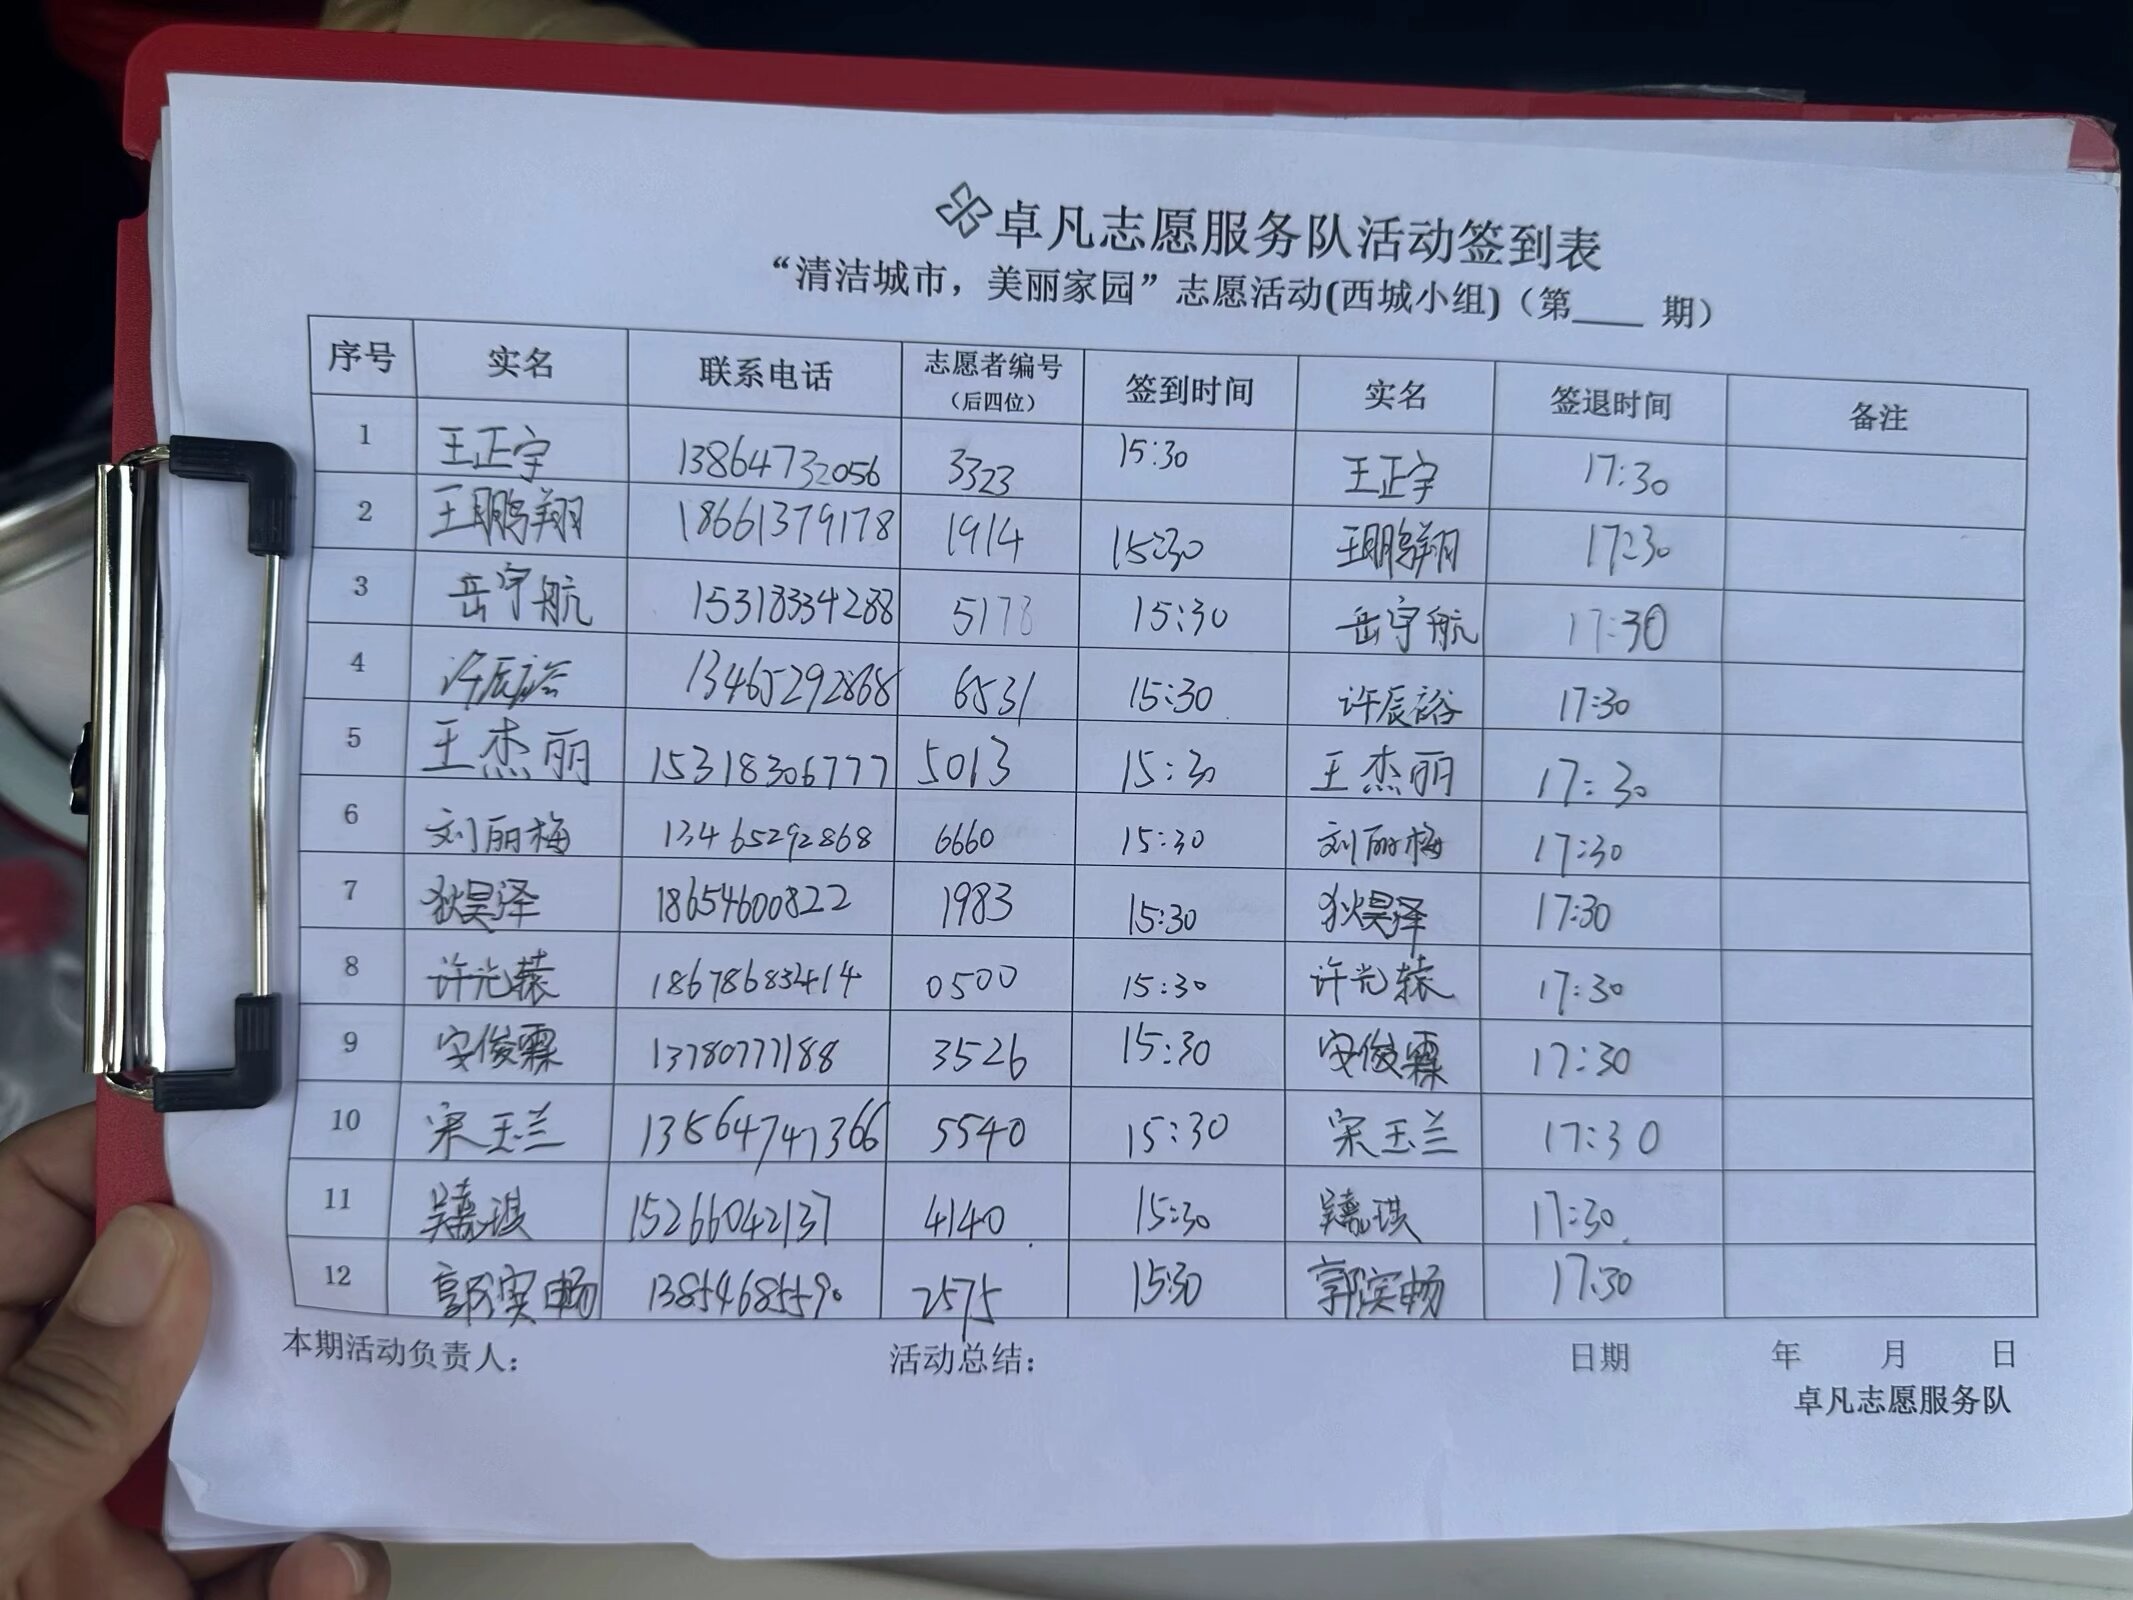 卓凡志愿服务队活动签到表
“清洁城市，美丽家园”志愿活动(西城小组)（第____ 期）
序号 实名 联系电话 志愿者编号（后四位） 签到时间 实名 签退时间 备注
1 王正宇 13864732056 3323 15:30 王正宇 17:30
2 王鹏翔 18661379178 1914 15:30 王鹏翔 17:30
3 岳宇航 15318334288 5178 15:30 岳宇航 17:30
4 许辰裕 13465292868 6531 15:30 许辰裕 17:30
5 王杰丽 15318306777 5013 15:30 王杰丽 17:30
6 刘丽梅 13465292868 6660 15:30 刘丽梅 17:30
7 狄昊泽 18654600822 1983 15:30 狄昊泽 17:30
8 许光辕 18678683414 0500 15:30 许光辕 17:30
9 安俊霖 13780777188 3526 15:30 安俊霖 17:30
10 宋玉兰 13564747366 5540 15:30 宋玉兰 17:30
11 15266042137 4140 15:30 17:30
12 郭实畅 13854685590 2575 15:30 郭实畅 17:30
本期活动负责人： 活动总结： 日期 年 月 日
卓凡志愿服务队